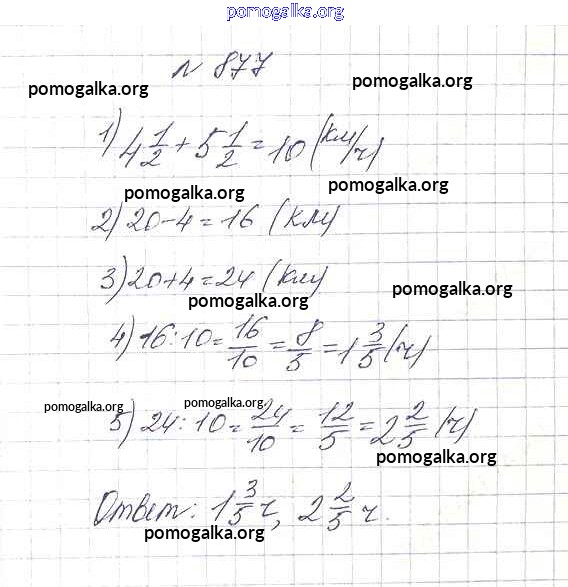 pomogalka.org
№ 877
pomogalka.org
pomogalka.org
1) 4 1/2 + 5 1/2 = 10 (км/ч)
pomogalka.org
pomogalka.org
2) 20 - 4 = 16 (км)
3) 20 + 4 = 24 (км)
pomogalka.org
pomogalka.org
4) 16 : 10 = 16/10 = 8/5 = 1 3/5 (ч)
pomogalka.org
pomogalka.org
5) 24 : 10 = 24/10 = 12/5 = 2 2/5 (ч)
pomogalka.org
Ответ: 1 3/5 ч, 2 2/5 ч.
pomogalka.org